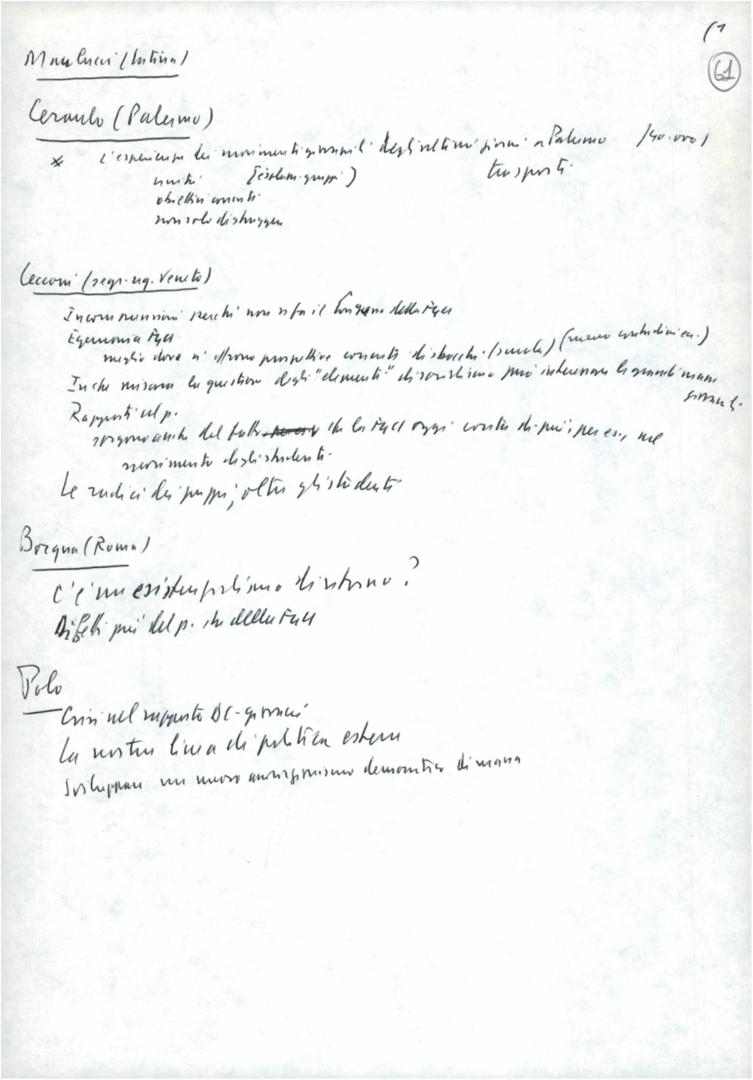 61
Ceraulo (Palermo)
* L'esperienza dei movimenti giovanili degli ultimi giorni a Palermo (40.000)
unità (isolam. gruppi) trasporti
obiettivi concreti
non solo distruggere
Cecconi (segr. reg. Veneto)
Incomprensioni perché non si fa il Congresso della Fgci
Egemonia Fgci
meglio dove si offrono prospettive concrete di sbocchi (scuola)
In che misura la questione degli "elementi" di socialismo può interessare le grandi masse
giovanili
Rapporti col p.
sorgono anche dal fatto che la Fgci oggi conta di più, per es., nel
movimento degli studenti
Le radici dei gruppi, oltre gli studenti
Borgna (Roma)
C'è un esistenzialismo di ritorno?
Difetti più del p. che della Fgci
Polo
Crisi nel rapporto DC-giovani
La nostra linea di politica estera
Sviluppare un nuovo associazionismo democratico di massa